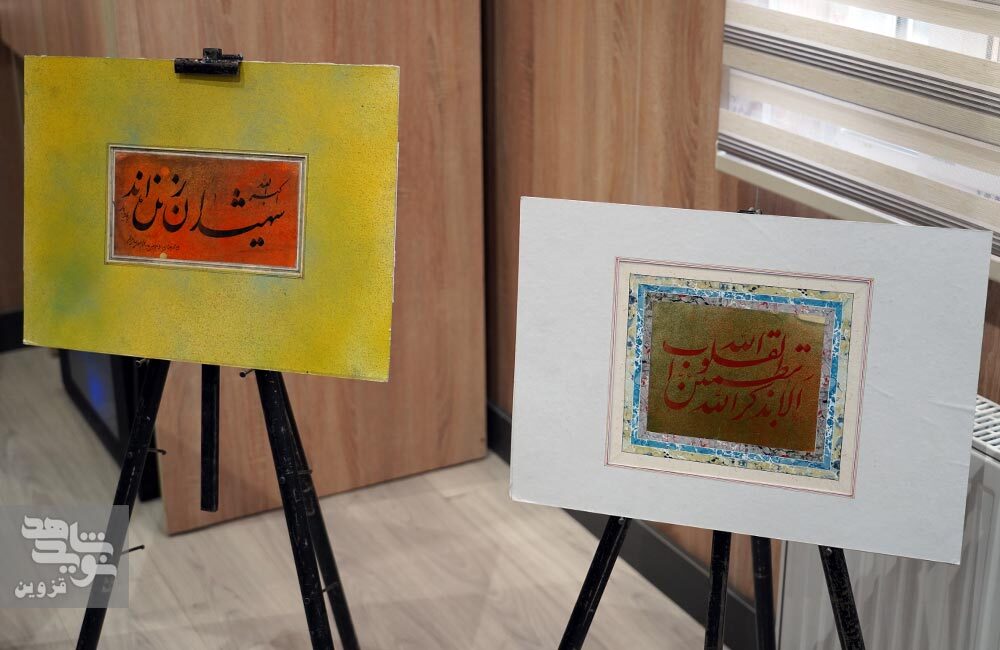 الله اکبر
شهیدان زنده اند
الا بذکر الله
تطمئن القلوب
نوید شاهد
قزوین